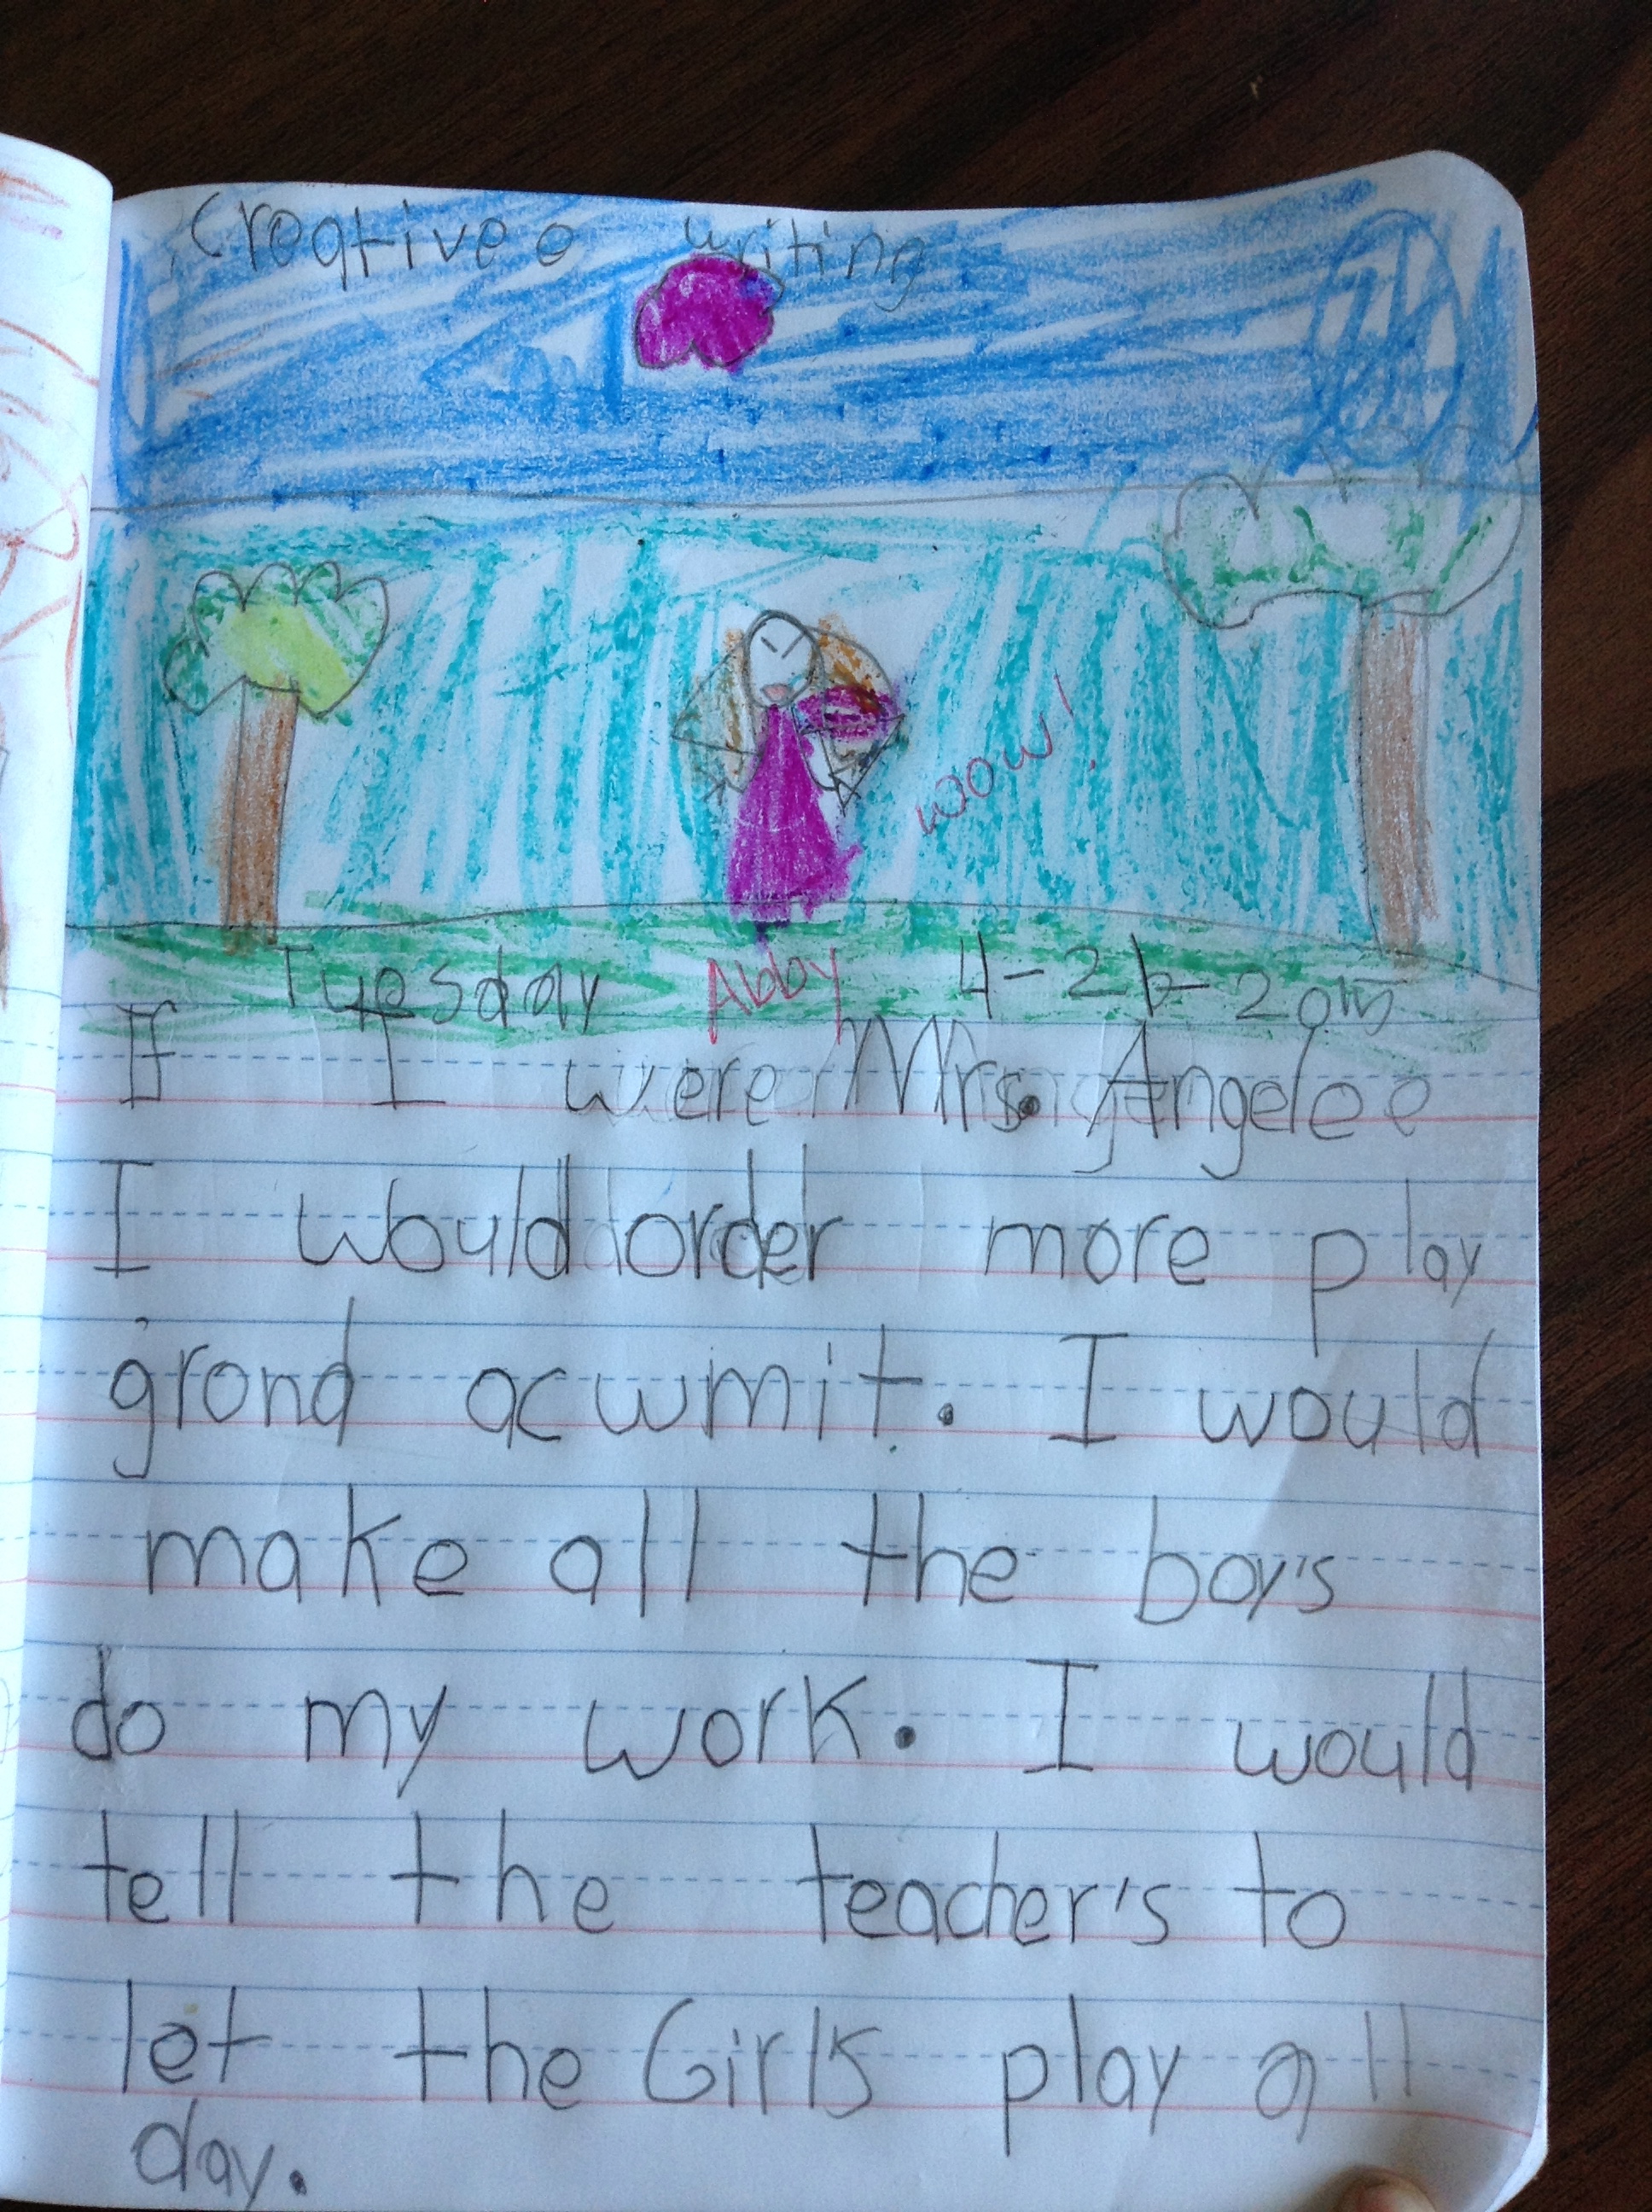 Creative e writing
wow!
Tuesday Abby 4-21-2015
If I were Mrs. Angelee
I would order more play
grond acwmit. I would
make all the boy's
do my work. I would
tell the teacher's to
let the Girls play all
day.